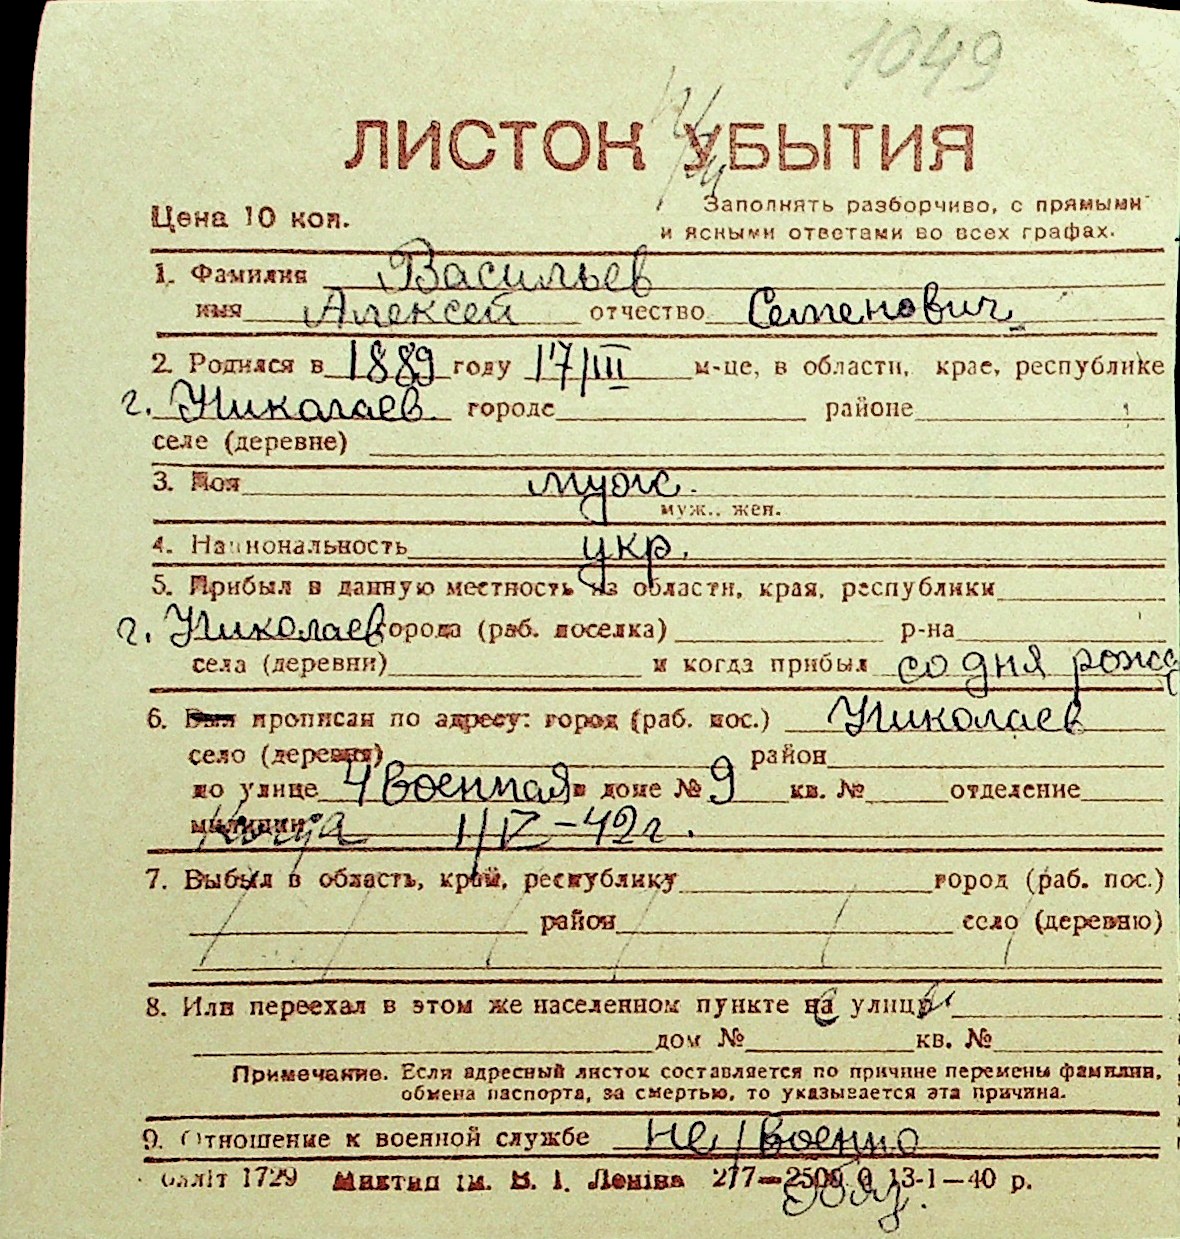 1049
ЛИСТОК УБЫТИЯ
Цена 10 коп.
Заполнять разборчиво, с прямыми
и ясными ответами во всех графах.
1. Фамилия Васильев
имя Алексей отчество Семенович
2. Родился в 1889 году 17/III м-це, в области, крае, республике
г. Николаев городе районе
селе (деревне)
3. Пол муж.
муж., жен.
4. Национальность укр.
5. Прибыл в данную местность из области, края, республики
г. Николаев города (раб. поселка) р-на
села (деревни) и когда прибыл со дня рожд
6. Был прописан по адресу: город (раб. пос.) Николаев
село (деревня) район
по улице 4 Военная в доме № 9 кв. № отделение
милиции Когда 1/IV-42 г.
7. Выбыл в область, край, республику город (раб. пос.)
район село (деревню)
8. Или переехал в этом же населенном пункте на улицу
дом № кв. №
Примечание. Если адресный листок составляется по причине перемены фамилии,
обмена паспорта, за смертью, то указывается эта причина.
9. Отношение к военной службе не/военно
обяз.
Обліт 1729 Миктип ім. В. І. Леніна 277—2500 0 13-1—40 р.